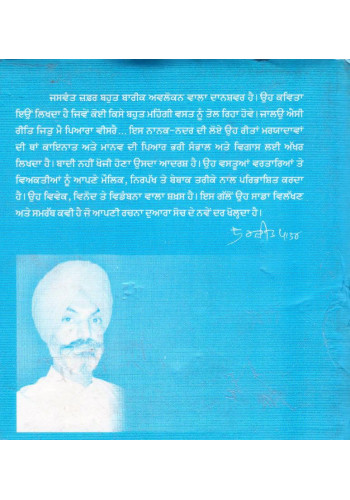 ਜਸਵੰਤ ਜ਼ਫ਼ਰ ਬਹੁਤ ਬਾਰੀਕ ਅਵਲੋਕਨ ਵਾਲਾ ਦਾਨਸ਼ਵਰ ਹੈ। ਉਹ ਕਵਿਤਾ
ਇਉਂ ਲਿਖਦਾ ਹੈ ਜਿਵੇਂ ਕੋਈ ਕਿਸੇ ਬਹੁਤ ਮਹਿੰਗੀ ਵਸਤ ਨੂੰ ਤੋਲ ਰਿਹਾ ਹੋਵੇ। ਜਾਲਉ ਐਸੀ
ਰੀਤਿ ਜਿਤੁ ਮੈ ਪਿਆਰਾ ਵੀਸਰੈ... ਇਸ ਨਾਨਕ-ਨਦਰ ਦੀ ਲੋਏ ਉਹ ਰੀਤਾਂ ਮਰਯਾਦਾਵਾਂ
ਦੀ ਥਾਂ ਕਾਇਨਾਤ ਅਤੇ ਮਾਨਵ ਦੀ ਪਿਆਰ ਭਰੀ ਸੰਭਾਲ ਅਤੇ ਵਿਗਾਸ ਲਈ ਅੱਖਰ
ਲਿਖਦਾ ਹੈ। ਬਾਦੀ ਨਹੀਂ ਖੋਜੀ ਹੋਣਾ ਉਸਦਾ ਆਦਰਸ਼ ਹੈ। ਉਹ ਵਸਤੂਆਂ ਵਰਤਾਰਿਆਂ ਤੇ
ਵਿਅਕਤੀਆਂ ਨੂੰ ਆਪਣੇ ਮੌਲਿਕ, ਨਿਰਪੱਖ ਤੇ ਬੇਬਾਕ ਤਰੀਕੇ ਨਾਲ ਪਰਿਭਾਸ਼ਿਤ ਕਰਦਾ
ਹੈ। ਉਹ ਵਿਵੇਕ, ਵਿਨੋਦ ਤੇ ਵਿਡੰਬਨਾ ਵਾਲਾ ਸ਼ਖ਼ਸ ਹੈ। ਇਸ ਗੱਲੋਂ ਉਹ ਸਾਡਾ ਵਿਲੱਖਣ
ਅਤੇ ਸਮਰੱਥ ਕਵੀ ਹੈ ਜੋ ਆਪਣੀ ਰਚਨਾ ਦੁਆਰਾ ਸੋਚ ਦੇ ਨਵੇਂ ਦਰ ਖੋਲ੍ਹਦਾ ਹੈ।
ਸੁਰਜੀਤ ਪਾਤਰ